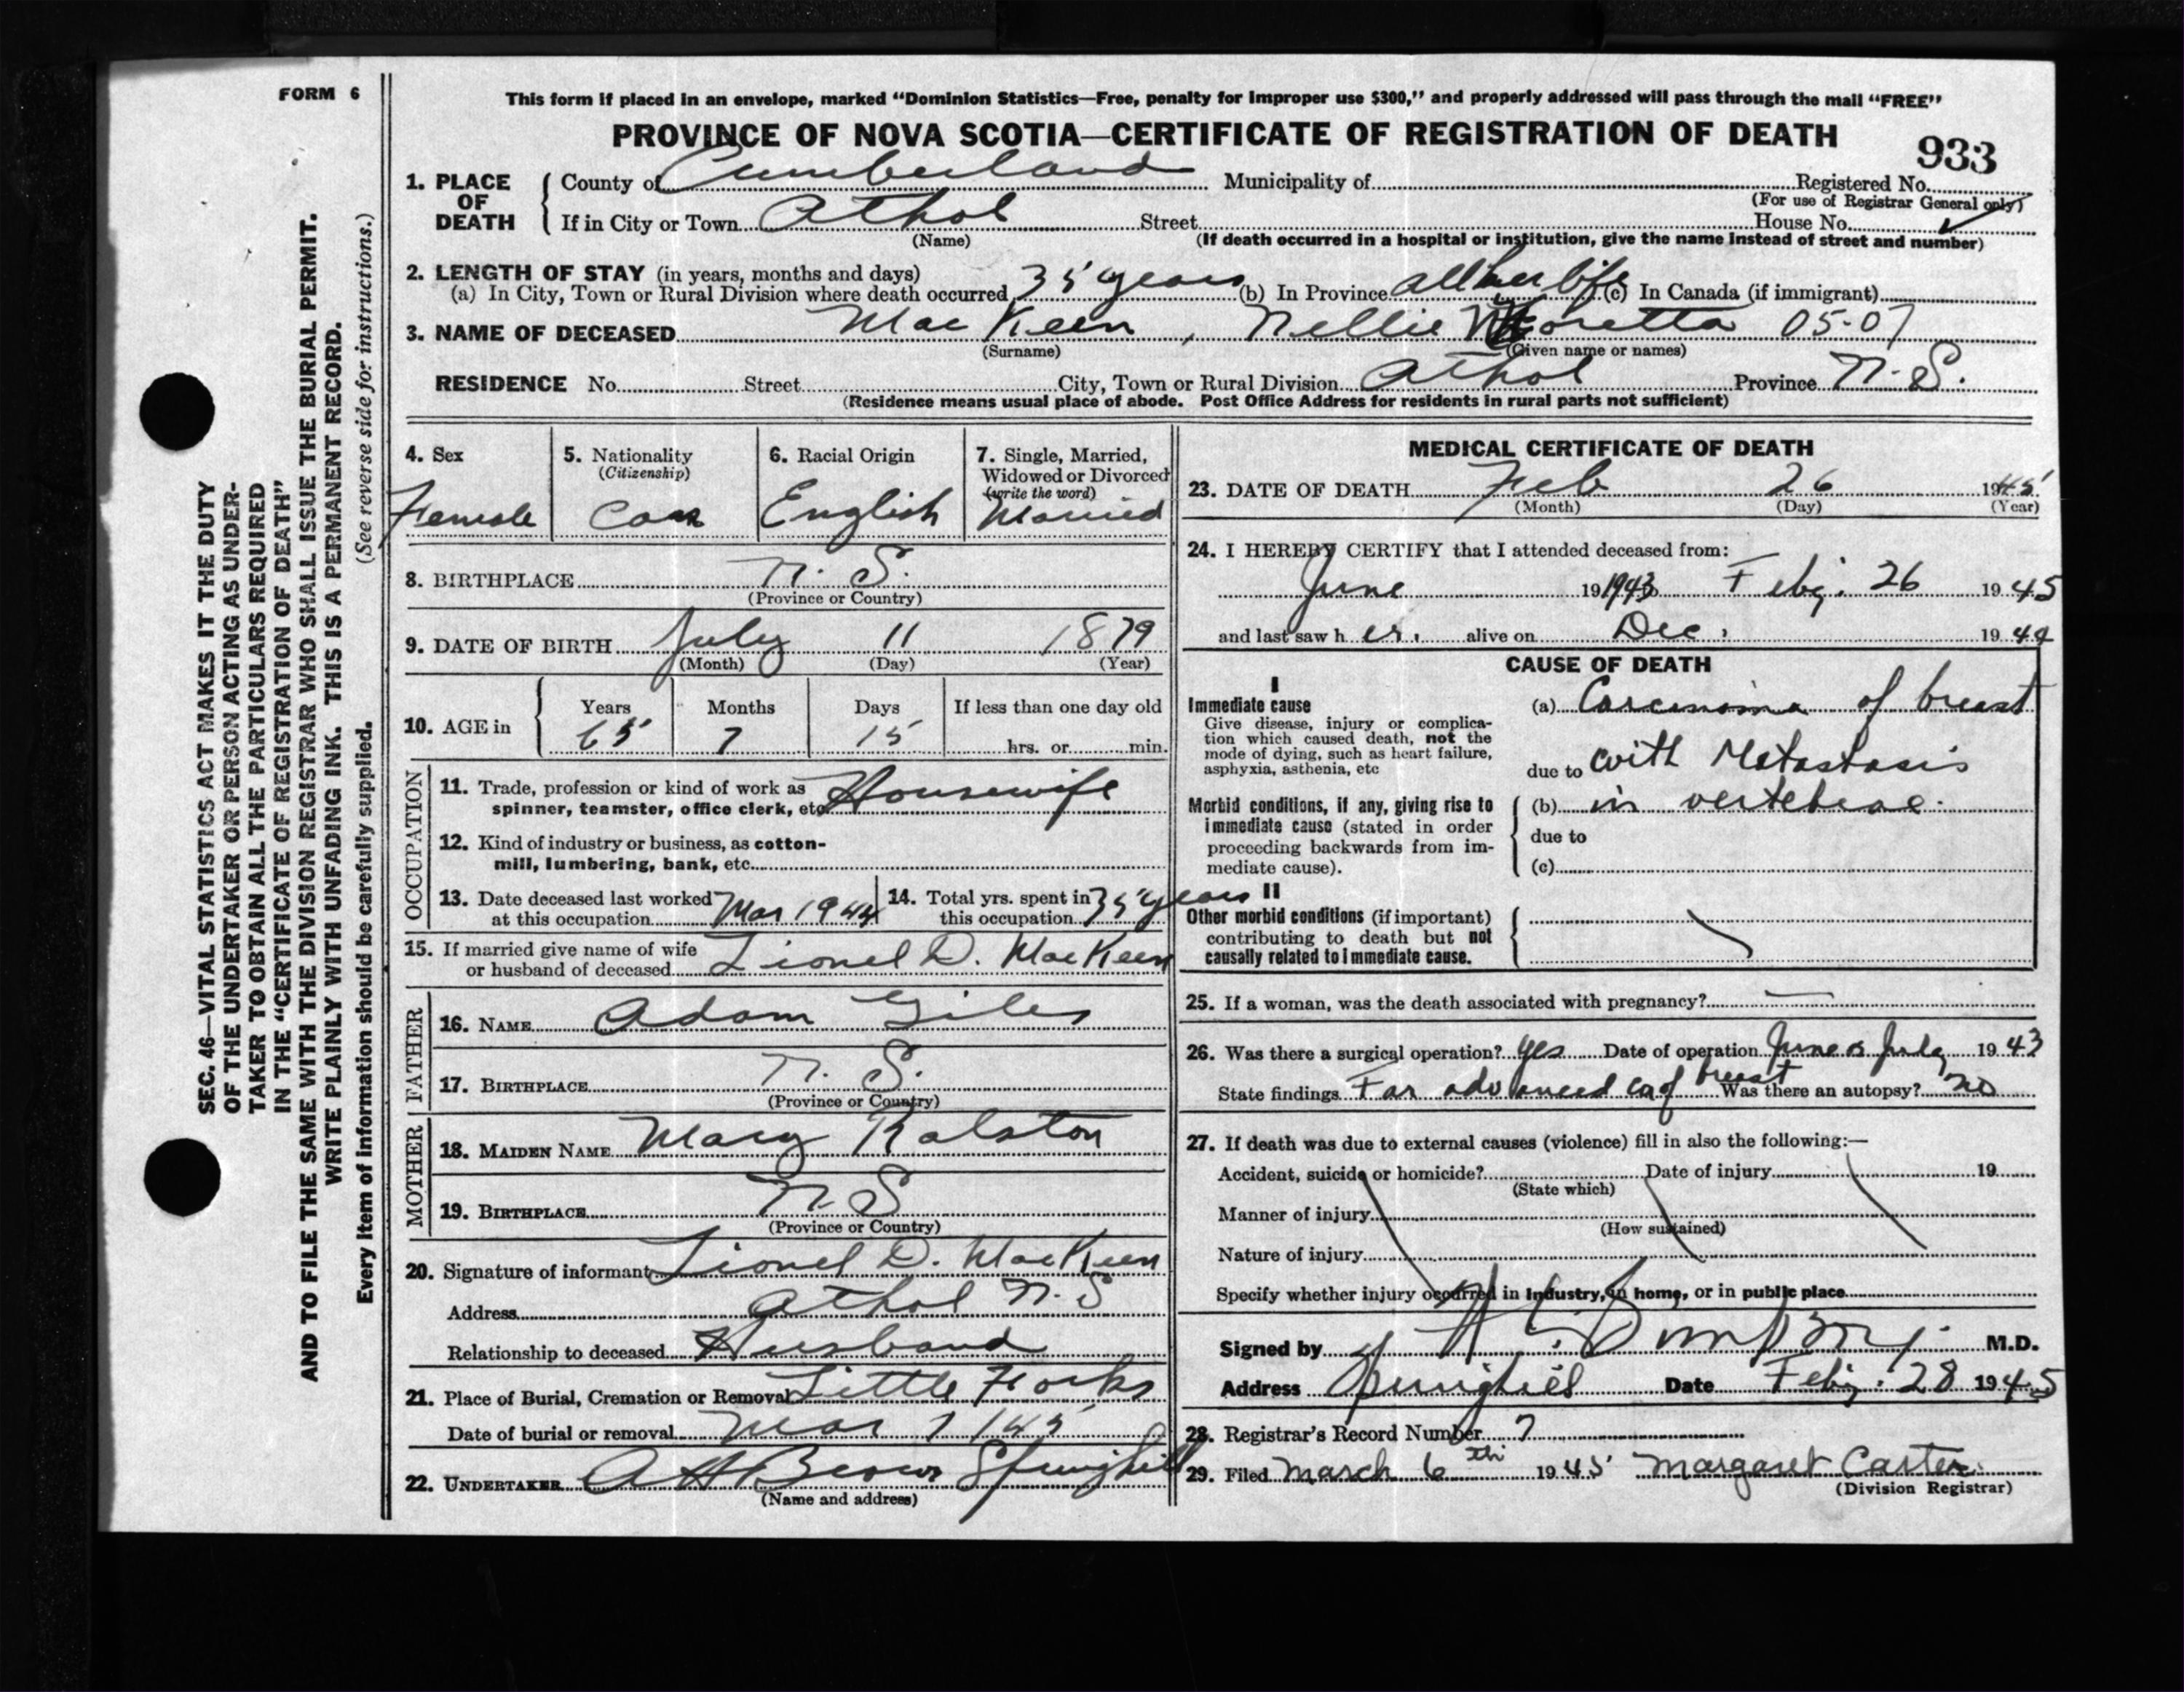 FORM 6
This form if placed in an envelope, marked "Dominion Statistics—Free, penalty for improper use $300," and properly addressed will pass through the mail "FREE"
PROVINCE OF NOVA SCOTIA—CERTIFICATE OF REGISTRATION OF DEATH
933
1. PLACE OF DEATH County of Cumberland Municipality of Registered No.
(For use of Registrar General only)
If in City or Town Athol Street House No.
(Name) (If death occurred in a hospital or institution, give the name instead of street and number)
2. LENGTH OF STAY (in years, months and days)
(a) In City, Town or Rural Division where death occurred 35 years (b) In Province all her life (c) In Canada (if immigrant)
3. NAME OF DECEASED MacKeen, Nellie 05-07
(Surname) (Given name or names)
RESIDENCE No. Street City, Town or Rural Division Athol Province N.S.
(Residence means usual place of abode. Post Office Address for residents in rural parts not sufficient)
4. Sex
Female
5. Nationality
(Citizenship)
Can
6. Racial Origin
English
7. Single, Married,
Widowed or Divorced
(write the word)
Married
8. BIRTHPLACE N. S.
(Province or Country)
9. DATE OF BIRTH July 11 1879
(Month) (Day) (Year)
10. AGE in Years Months Days If less than one day old
65 7 15 hrs. or min.
OCCUPATION
11. Trade, profession or kind of work as
spinner, teamster, office clerk, etc. Housewife
12. Kind of industry or business, as cotton-
mill, lumbering, bank, etc.
13. Date deceased last worked
at this occupation Mar 1944
14. Total yrs. spent in
this occupation 35 years
15. If married give name of wife
or husband of deceased Lionel D. MacKeen
FATHER
16. NAME Adam Giles
17. BIRTHPLACE N. S.
(Province or Country)
MOTHER
18. MAIDEN NAME Mary Ralston
19. BIRTHPLACE N. S
(Province or Country)
20. Signature of informant Lionel D. MacKeen
Address Athol N. S
Relationship to deceased Husband
21. Place of Burial, Cremation or Removal Little Forks
Date of burial or removal Mar 1/45
22. UNDERTAKER A H Brown Springhill
(Name and address)
MEDICAL CERTIFICATE OF DEATH
23. DATE OF DEATH Feb 26 1945
(Month) (Day) (Year)
24. I HEREBY CERTIFY that I attended deceased from:
June 19 1943 to Feby. 26 19 45
and last saw h er. alive on Dec. 19 44
CAUSE OF DEATH
I
Immediate cause
Give disease, injury or complica-
tion which caused death, not the
mode of dying, such as heart failure,
asphyxia, asthenia, etc
(a) Carcinoma of breast
due to with Metastasis
Morbid conditions, if any, giving rise to
immediate cause (stated in order
proceeding backwards from im-
mediate cause).
(b) in vertebrae.
due to
(c)
II
Other morbid conditions (if important)
contributing to death but not
causally related to immediate cause.
25. If a woman, was the death associated with pregnancy? —
26. Was there a surgical operation? yes Date of operation June or July 19 43
State findings Far advanced ca of breast Was there an autopsy? no
27. If death was due to external causes (violence) fill in also the following:—
Accident, suicide or homicide? Date of injury 19
(State which)
Manner of injury
(How sustained)
Nature of injury
Specify whether injury occurred in industry, in home, or in public place
Signed by M.D.
Address Springhill Date Feby. 28 1945
28. Registrar's Record Number 7
29. Filed March 6th 1945 Margaret Carter
(Division Registrar)
SEC. 46—VITAL STATISTICS ACT MAKES IT THE DUTY
OF THE UNDERTAKER OR PERSON ACTING AS UNDER-
TAKER TO OBTAIN ALL THE PARTICULARS REQUIRED
IN THE "CERTIFICATE OF REGISTRATION OF DEATH"
AND TO FILE THE SAME WITH THE DIVISION REGISTRAR WHO SHALL ISSUE THE BURIAL PERMIT.
WRITE PLAINLY WITH UNFADING INK. THIS IS A PERMANENT RECORD.
Every item of information should be carefully supplied. (See reverse side for instructions.)